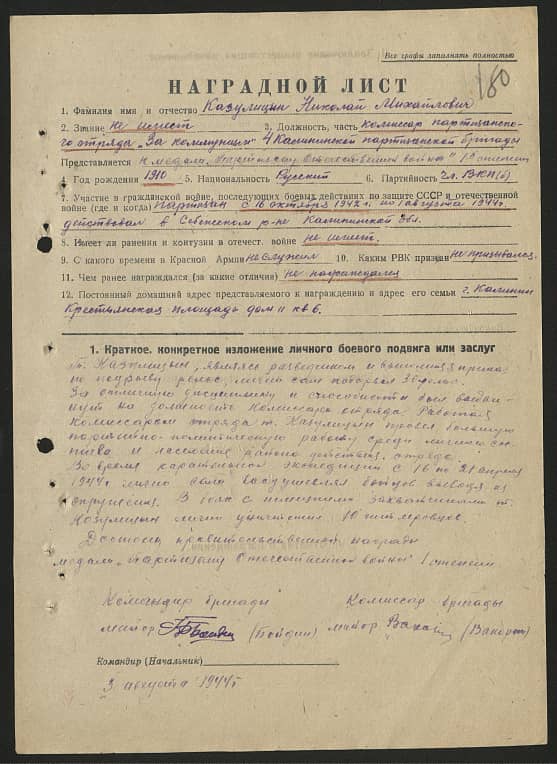 Все графы заполнять полностью
180
НАГРАДНОЙ ЛИСТ
1. Фамилия имя и отчество Казулицын Николай Михайлович
2. Звание не имеет 3. Должность, часть комиссар партизанско-
го отряда „За коммунизм" 4 Калининской партизанской бригады
Представляется к медали „Партизану Отечественной войны" 1 степени
4. Год рождения 1910 5. Национальность Русский 6. Партийность чл. ВКП(б)
7. Участие в гражданской войне, последующих боевых действиях по защите СССР и отечественной
войне (где и когда) Партизан с 16 октября 1942 г. по 1 августа 1944 г.
действовал в Себежском р-не Калининской обл.
8. Имеет ли ранения и контузии в отечест. войне не имеет.
9. С какого времени в Красной Армии не служил 10. Каким РВК призван не призывался
11. Чем ранее награждался (за какие отличия) не награждался
12. Постоянный домашний адрес представляемого к награждению и адрес его семьи г. Калинин
Крестьянская площадь дом 11 кв 6.
1. Краткое, конкретное изложение личного боевого подвига или заслуг
т. Казулицын, являясь разведчиком и выполняя приказ
по подрыву рельс, лично сам
За отличную дисциплину и способности был выдви-
нут на должность комиссара отряда. Работая
комиссаром отряда т. Казулицын провел большую
партийно-политическую работу среди личного сос-
тава и населения района действия отряда.
Во время карательной экспедиции с 16 по 21 апреля
1944 г. лично сам воодушевлял бойцов выводя из
окружения. В боях с немецкими захватчиками т.
Казулицын лично уничтожил 10 гитлеровцев.
Достоин правительственной награды
медаль „Партизану Отечественной войны" 1 степени
Командир бригады Комиссар бригады
майор (Бойдин) майор
Командир (Начальник)
3 августа 1944 г